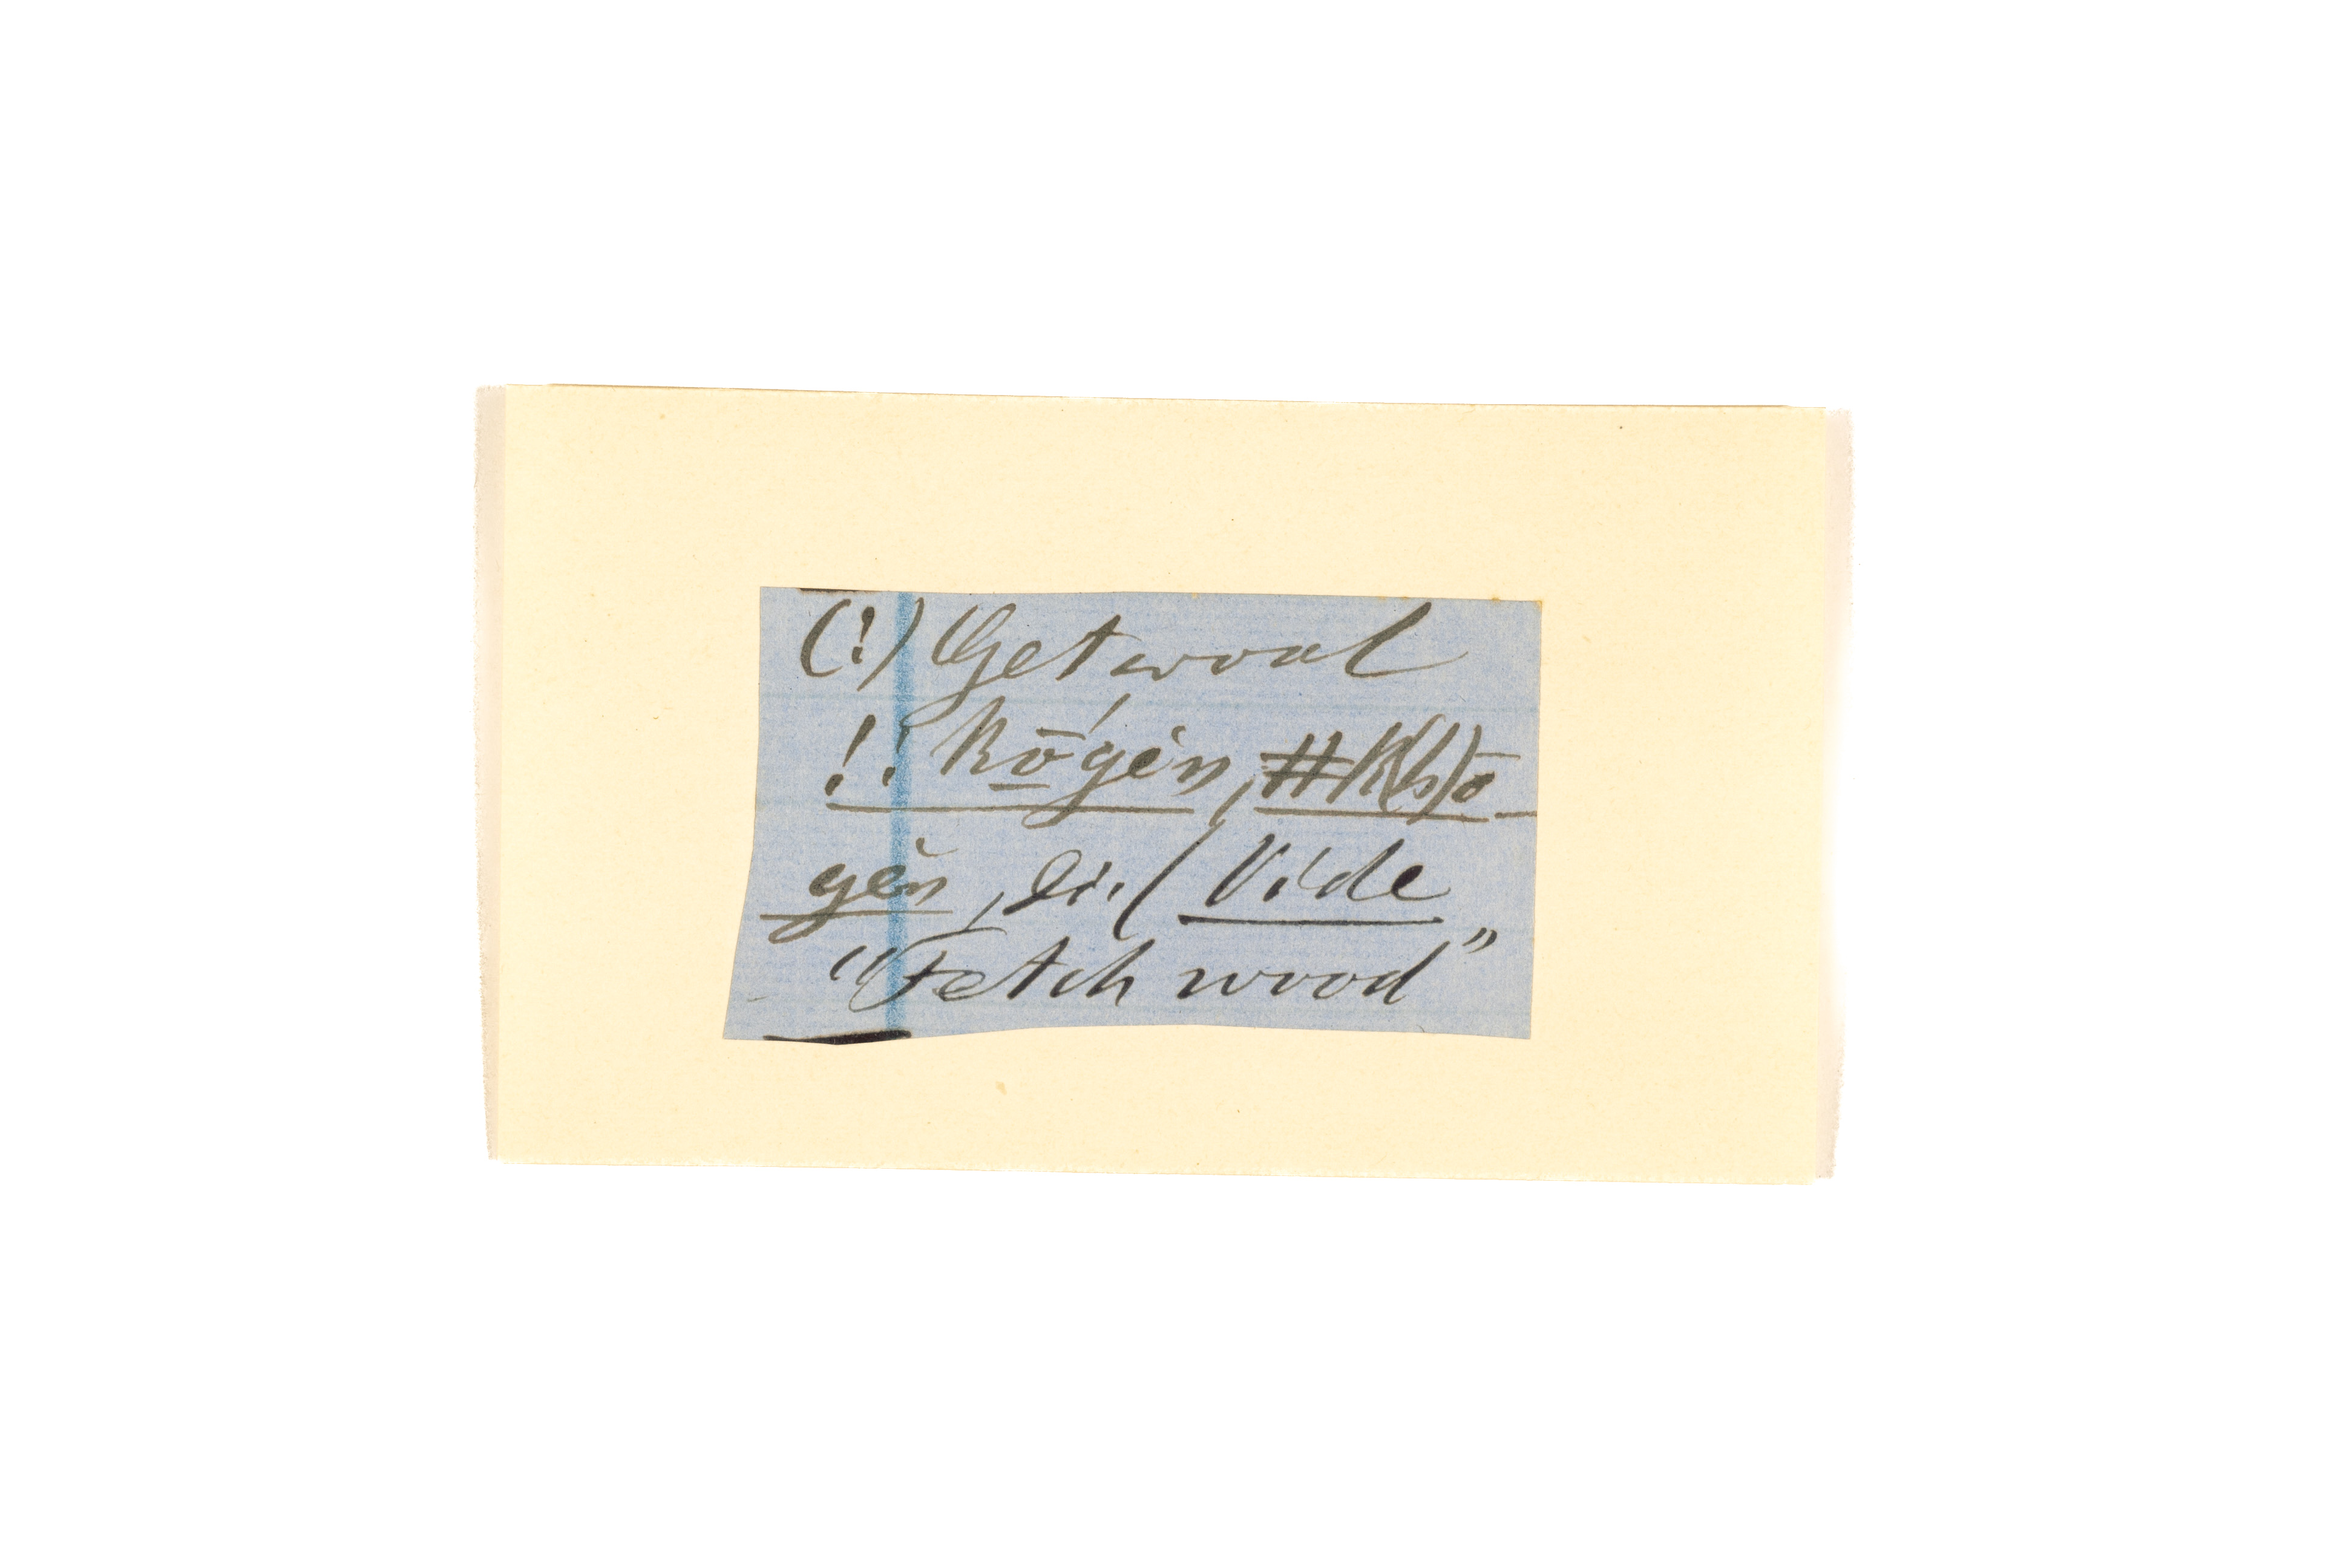 (!) Get wood
!: kō'gĕn, #k(h)ō
gĕn, D.i.( Vide
"Fetch wood"